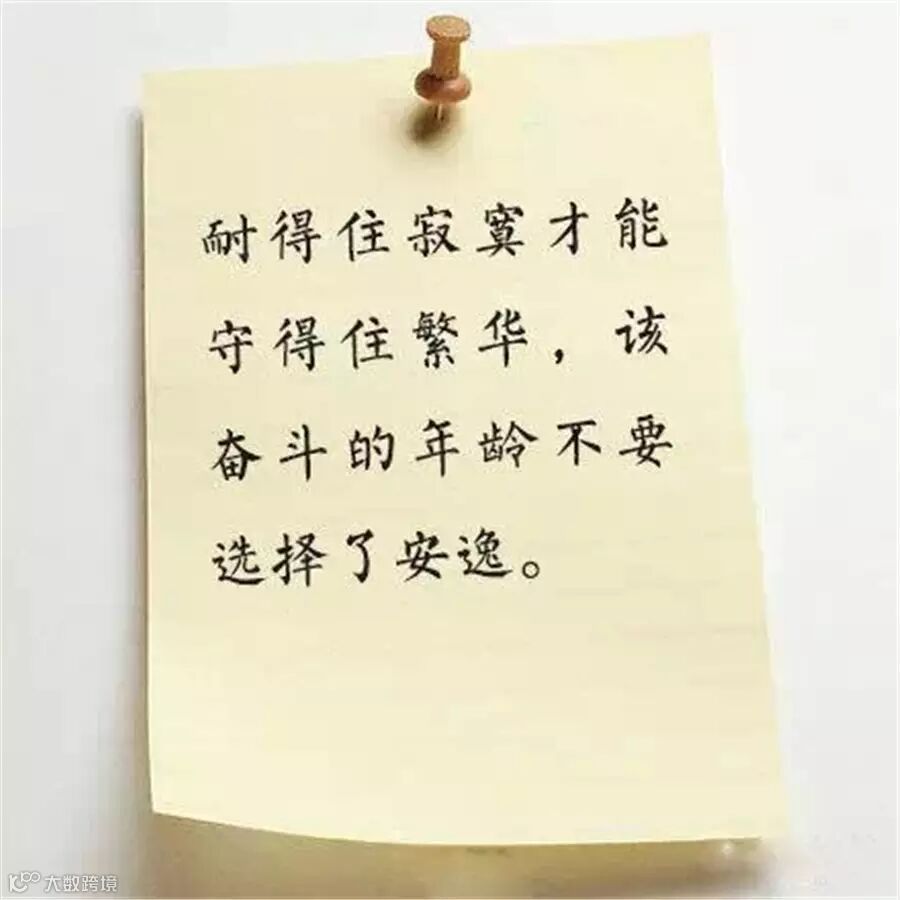 耐得住寂寞才能
守得住繁华，该
奋斗的年龄不要
选择了安逸。
大数跨境